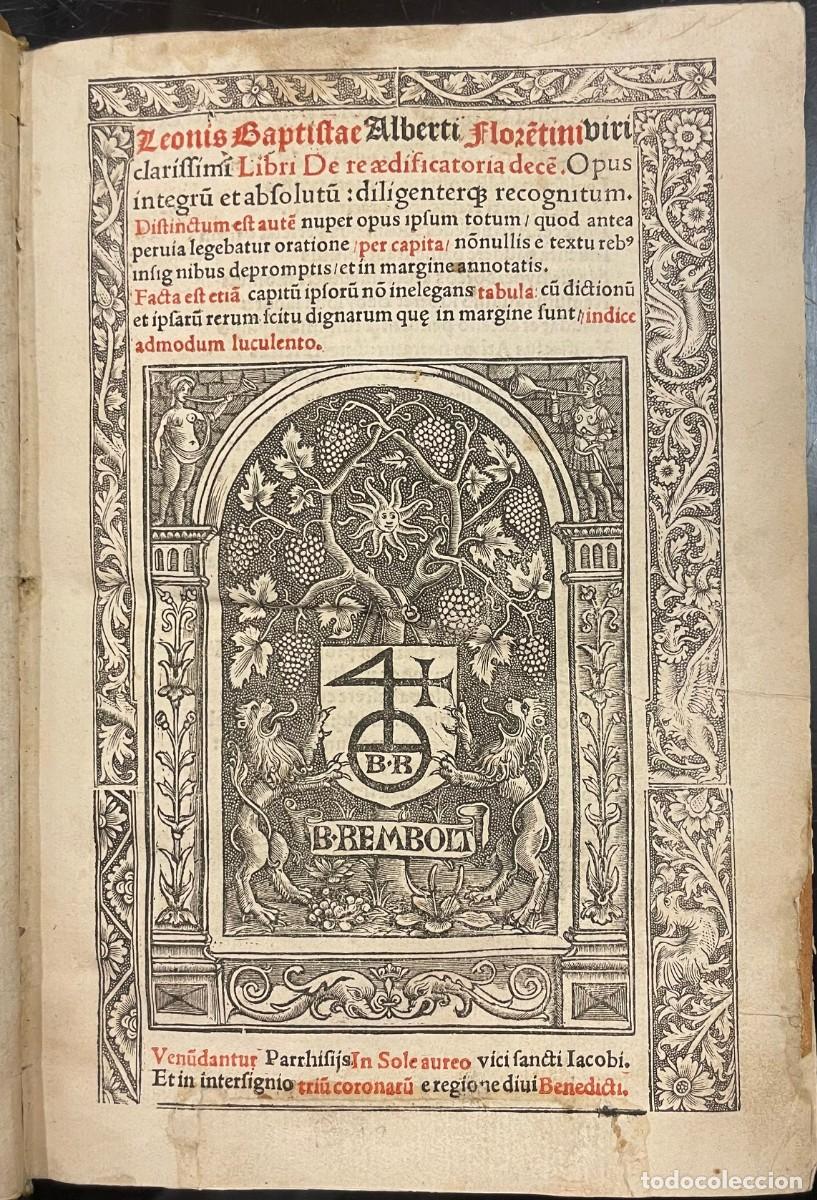 Leonis Baptistae Alberti Florẽtini viri
clarissimi Libri De re ædificatoria decẽ. Opus
integrũ et absolutũ : diligenterqȝ recognitum.
Distinctum est autẽ nuper opus ipsum totum / quod antea
peruia legebatur oratione / per capita / nõnullis e textu rebꝰ
insignibus depromptis / et in margine annotatis.
Facta est etiã capitũ ipsorũ nõ inelegans tabula : cũ dictionũ
et ipsarũ rerum scitu dignarum quę in margine sunt / indice
admodum luculento.
B·R
B·REMBOLT
Venũdantur Parrhisijs. In Sole aureo vici sancti Iacobi.
Et in intersignio triũ coronarũ e regione diui Benedicti.
todocoleccion